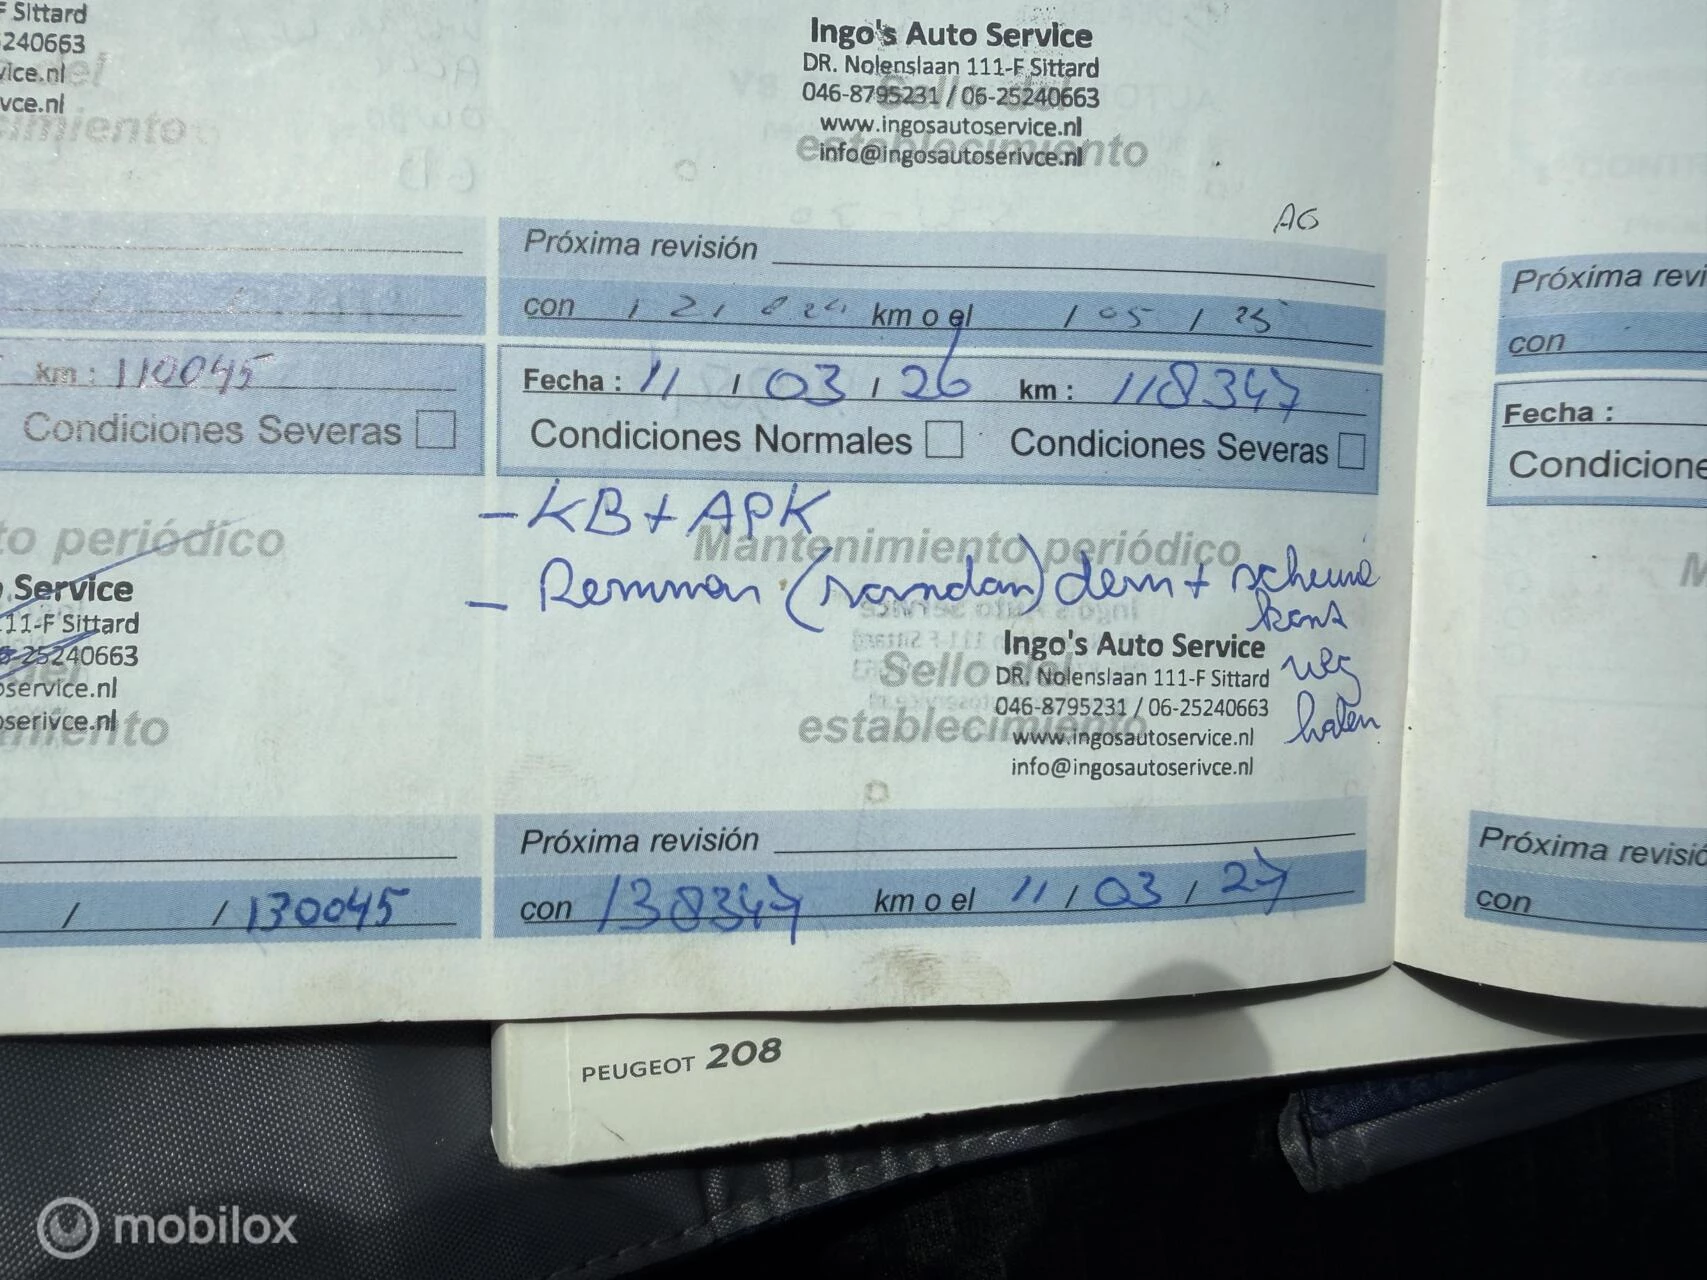 F Sittard
5240663
vice.nl
vce.nl
cimiento
km : 110045
Condiciones Severas
to periódico
Service
11-F Sittard
6-25240663
oservice.nl
oserivce.nl
miento
/ / 130045
Ingo's Auto Service
DR. Nolenslaan 111-F Sittard
046-8795231 / 06-25240663
www.ingosautoservice.nl
info@ingosautoserivce.nl
Sello del
establecimiento
AG
Próxima revisión
con 121 824 km o el / 05 / 25
Fecha : 11 / 03 / 26 km : 118347
Condiciones Normales Condiciones Severas
- KB + APK
Mantenimiento periódico
- Remmen (rondom) dem + schuine
kant
weg
halen
Ingo's Auto Service
Sello del
DR. Nolenslaan 111-F Sittard
046-8795231 / 06-25240663
establecimiento
www.ingosautoservice.nl
info@ingosautoserivce.nl
Próxima revisión
con 138347 km o el 11 / 03 / 27
Próxima revi
con
Fecha :
Condicione
M
Próxima revisió
con
PEUGEOT 208
mobilox